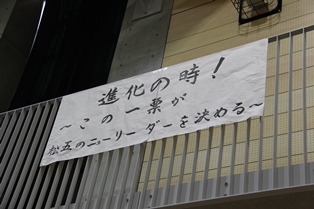 進化の時！
～この一票が
松五のニューリーダーを決める～